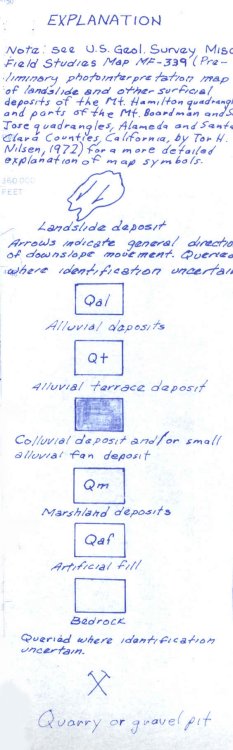 EXPLANATION
Note: see U.S. Geol. Survey Misc
Field Studies Map MF-339 (Pre-
liminary photointerpretation map
of landslide and other surficial
deposits of the Mt. Hamilton quadrangle
and parts of the Mt. Boardman and S
Jose quadrangles, Alameda and Santa
Clara Counties, California, by Tor H.
Nilsen, 1972) for a more detailed
explanation of map symbols.
FEET
Landslide deposit
Arrows indicate general directio
of downslope movement. Queried
where identification uncertain
Qal
Alluvial deposits
Qt
Alluvial terrace deposit
Colluvial deposit and/or small
alluvial fan deposit
Qm
Marshland deposits
Qaf
Artificial fill
Bedrock
Queried where identification
uncertain.
Quarry or gravel pit